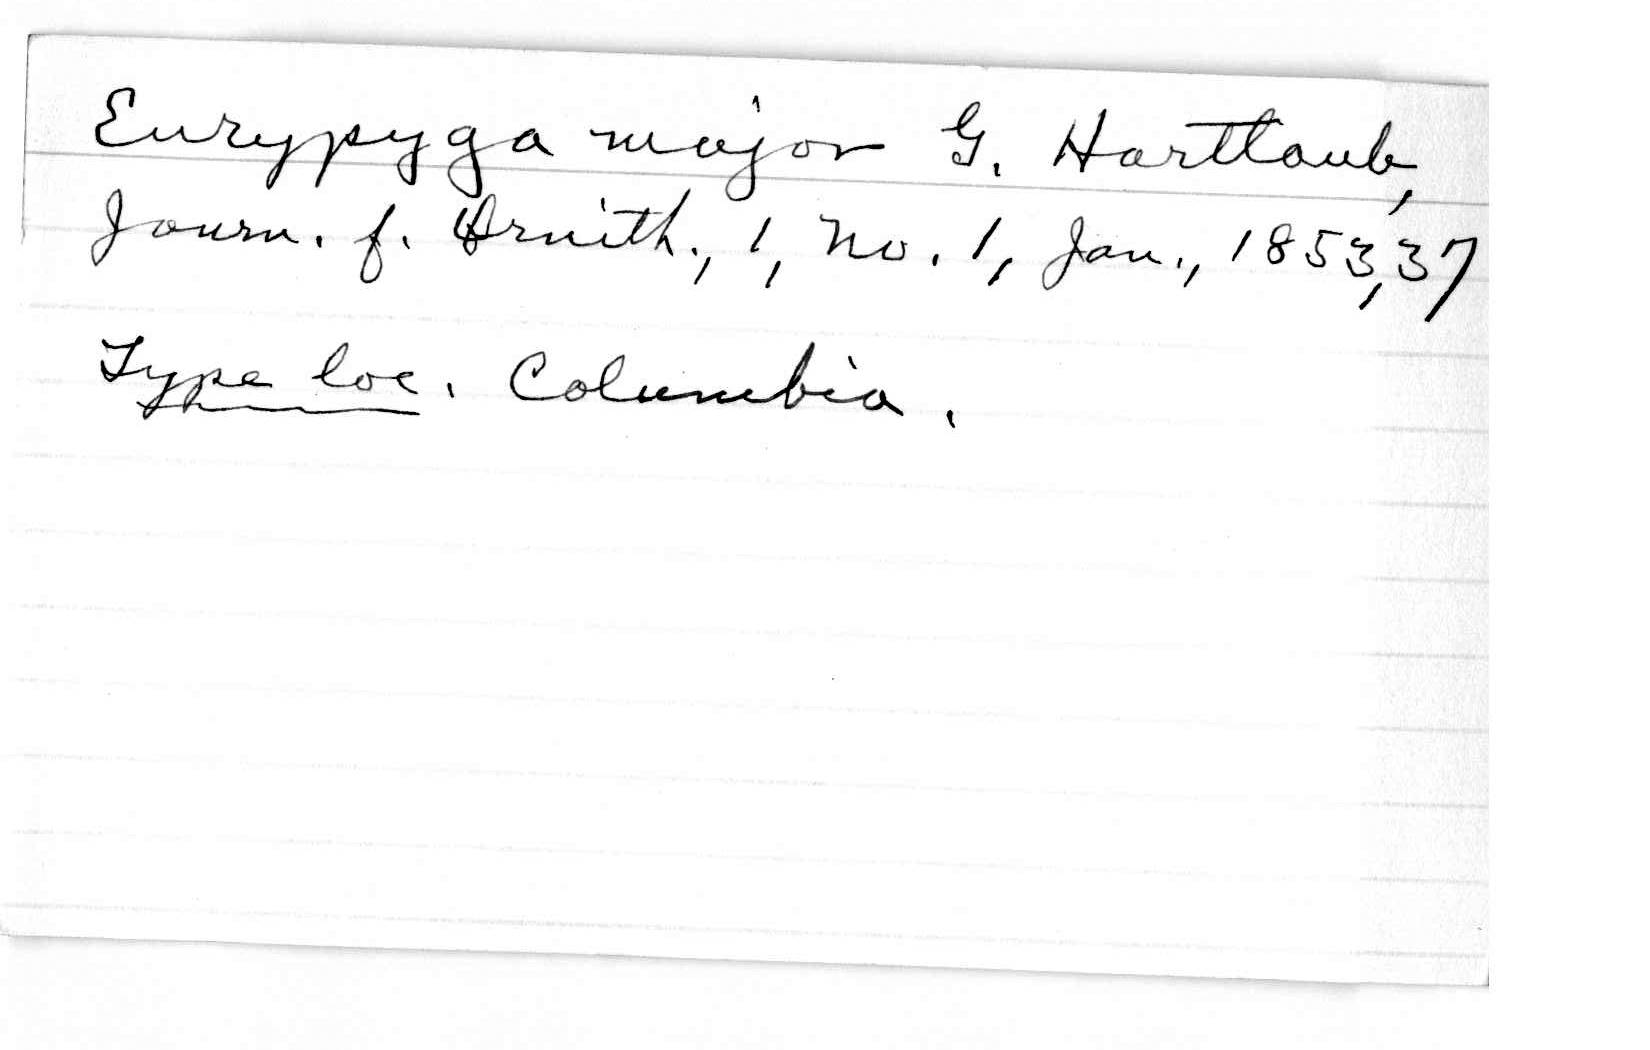 Eurypyga major G. Hartlaub,
Journ. f. Ornith., 1, No. 1, Jan., 1853, 37
Type loc. Columbia.